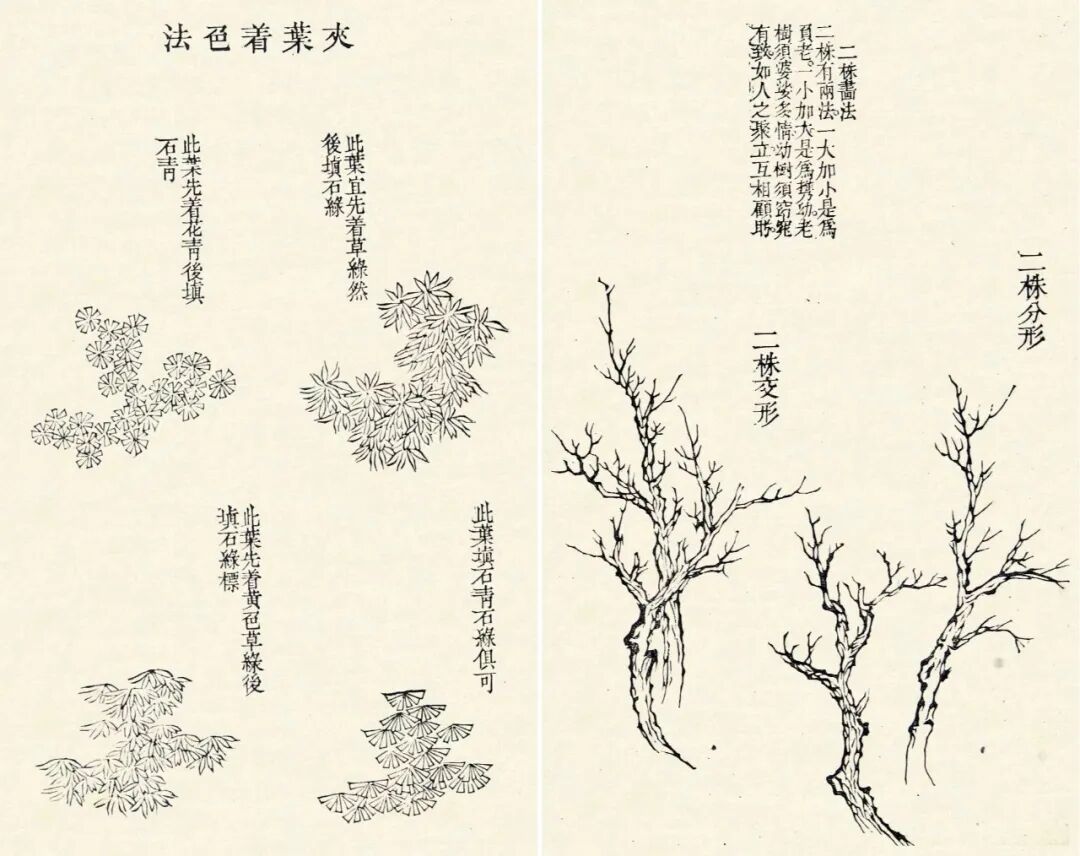 夾葉着色法
此葉宜先着草綠然
後填石綠
此葉先着花青後填
石青
此葉填石青石綠俱可
此葉先着黃色草綠後
填石綠標
二株畫法
二株有兩法一大加小是爲
負老一小加大是爲携幼老
樹須婆娑多情幼樹須窈窕
有致如人之聚立互相顧盼
二株分形
二株交形